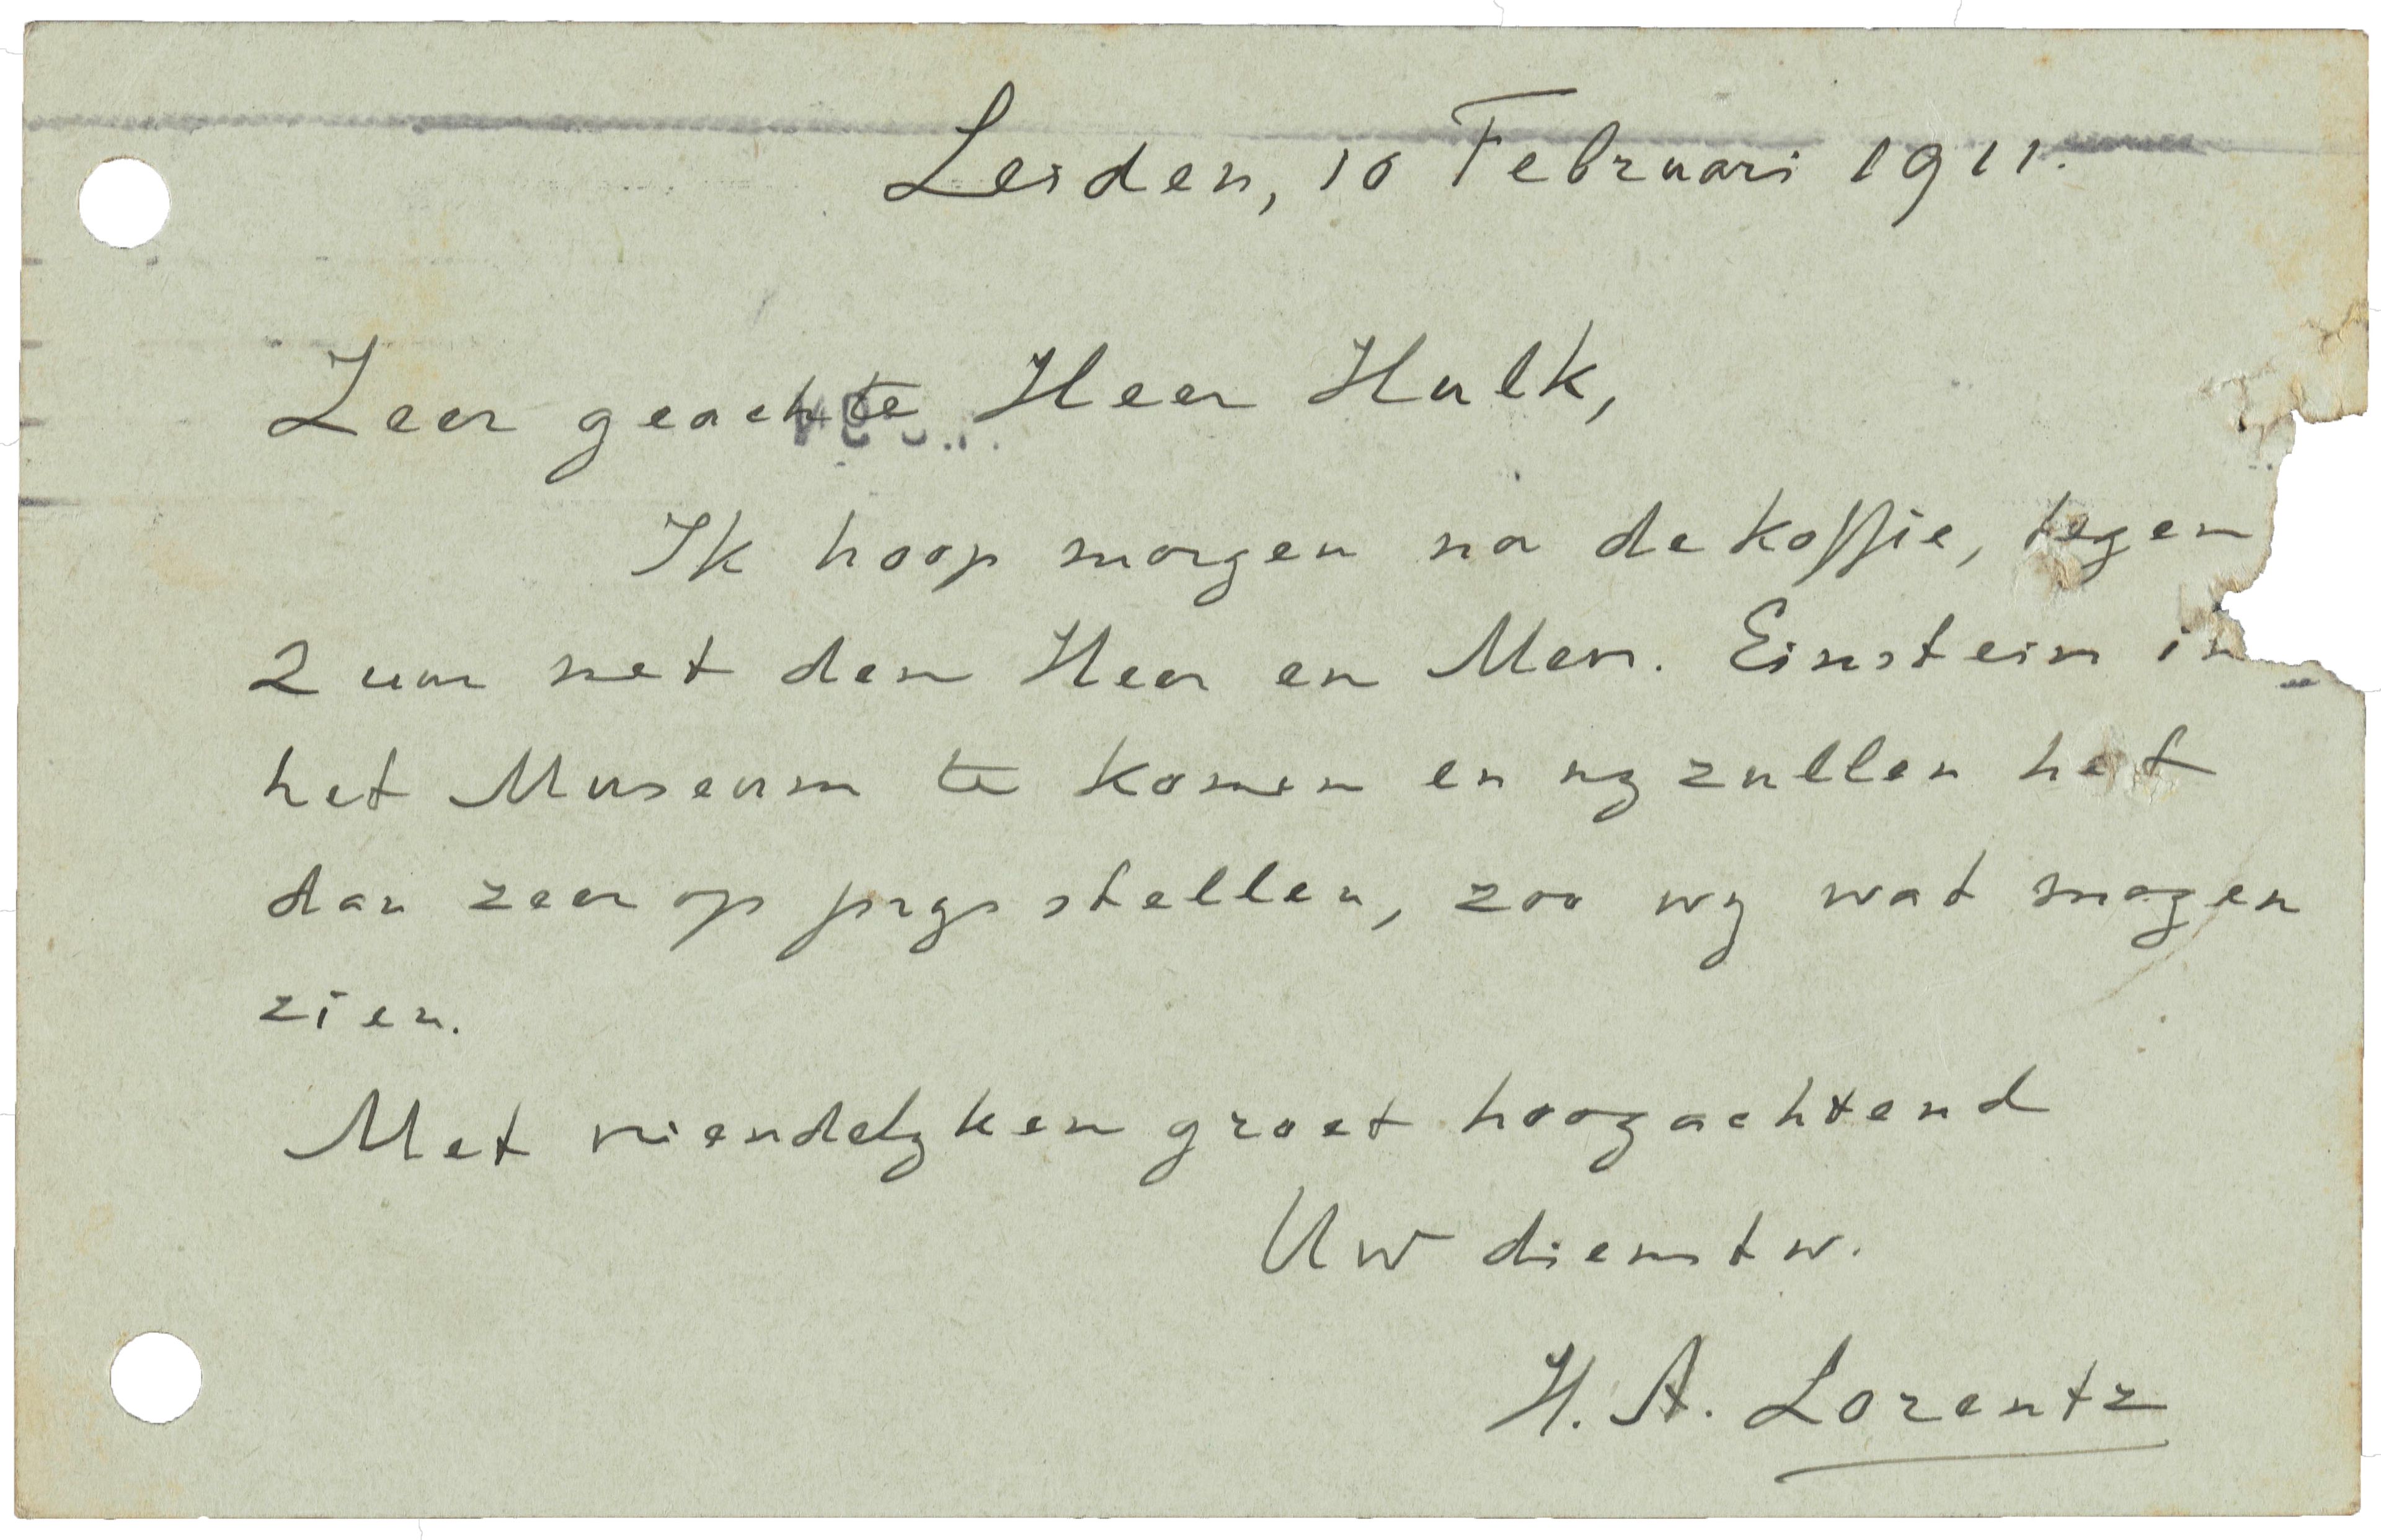 Leiden, 10 Februari 1911.
Zeer geachte Heer Hulk,
Ik hoop morgen na de koffie, tegen
2 uur met den Heer en Mevr. Einstein in
het Museum te komen en wij zullen het
dan zeer op prijs stellen, zoo wij wat mogen
zien.
Met vriendelijken groet hoogachtend
Uw dienstw.
H. A. Lorentz